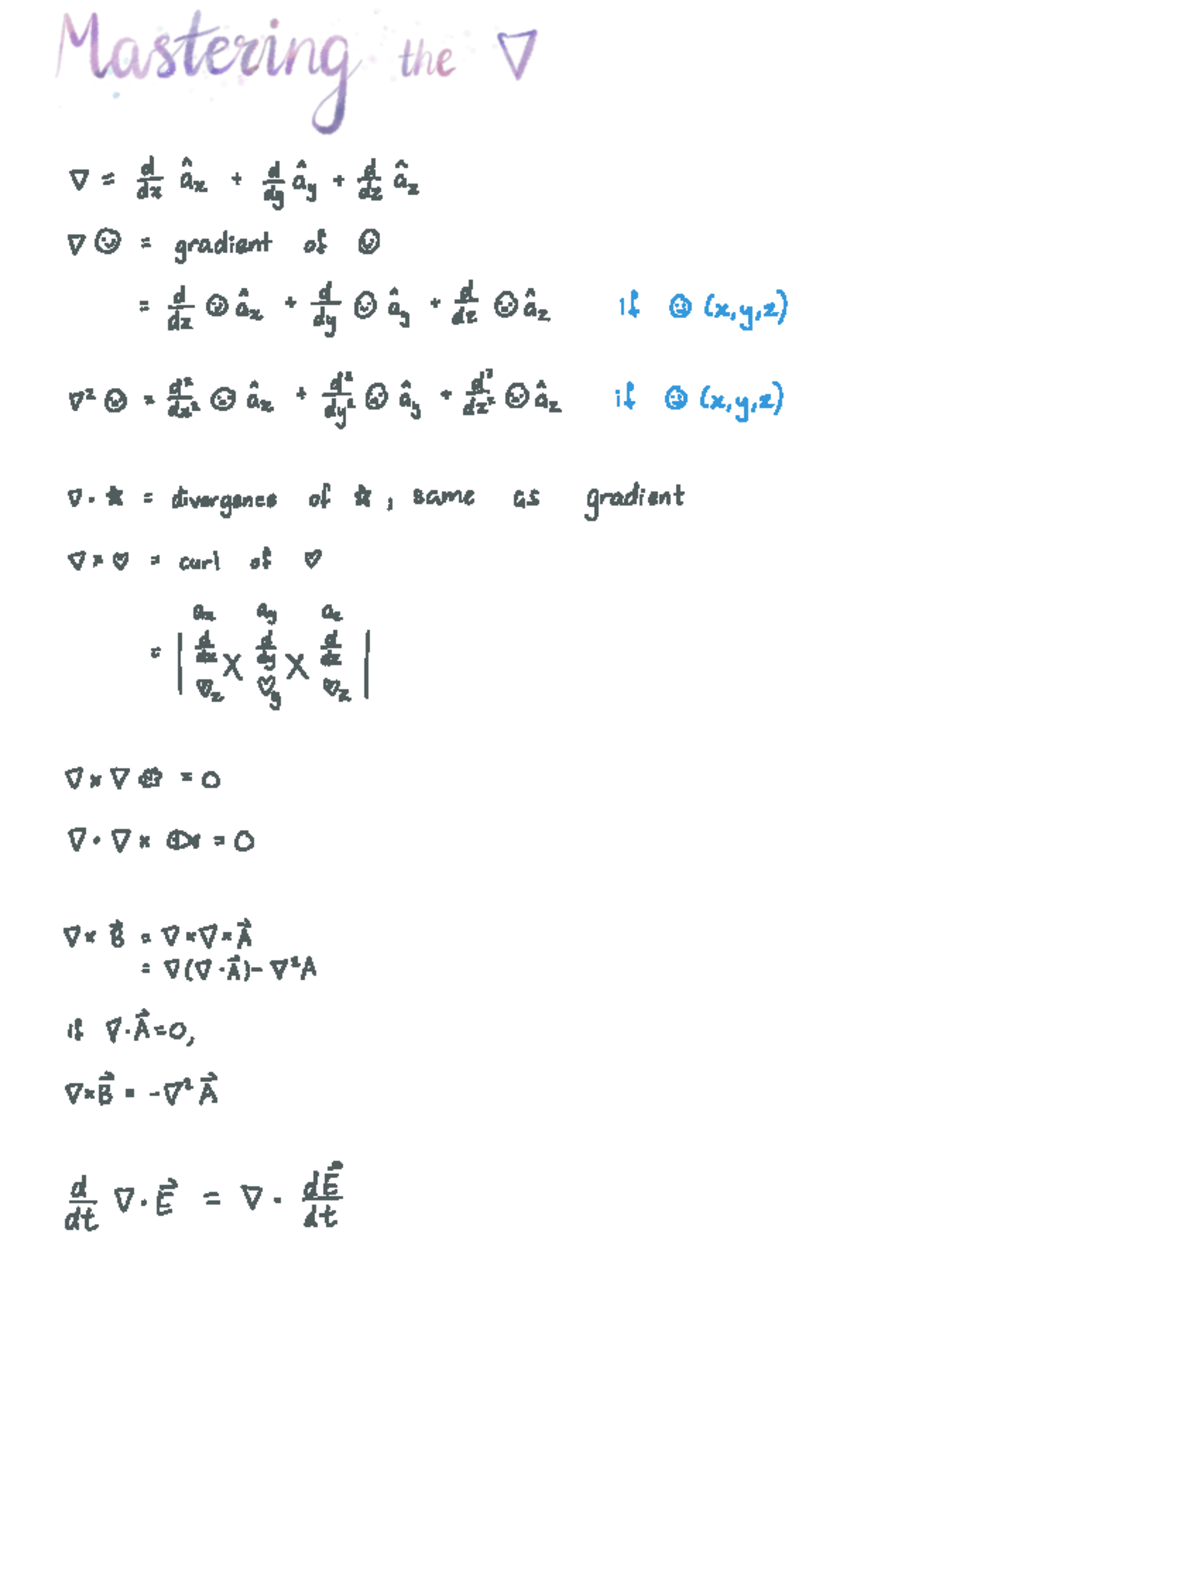 Mastering the ∇
∇ = d/dx âx + d/dy ây + d/dz âz
∇☺ = gradient of ☺
= d/dx ☺ âx + d/dy ☺ ây + d/dz ☺ âz if ☺ (x,y,z)
∇² ☺ = d²/dx² ☺ âx + d²/dy² ☺ ây + d²/dz² ☺ âz if ☺ (x,y,z)
∇ · ★ = divergence of ☆, same as gradient
∇ × ♡ = curl of ♡
ax ay az
= | d/dx X d/dy X d/dz |
♡x ♡y ♡z
∇ × ∇ = 0
∇ · ∇ × = 0
∇ × B⃗ = ∇ × ∇ × A⃗
= ∇(∇ · A⃗) - ∇²A
if ∇ · A⃗ = 0,
∇ × B⃗ = -∇² A⃗
d/dt ∇ · E⃗ = ∇ · dE⃗/dt